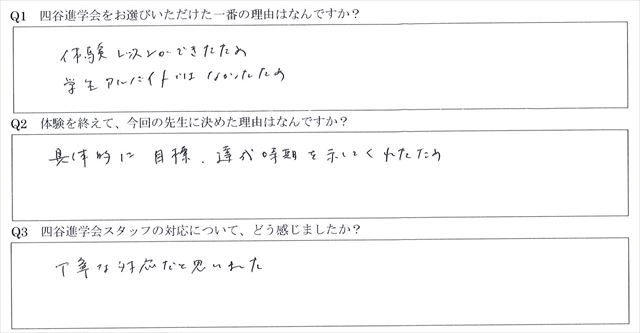 Q1 四谷進学会をお選びいただけた一番の理由はなんですか？
体験レッスンができたため
学生アルバイトではなかったため
Q2 体験を終えて、今回の先生に決めた理由はなんですか？
具体的に目標、達成時期を示してくれたため
Q3 四谷進学会スタッフの対応について、どう感じましたか？
丁寧な対応だと思われた